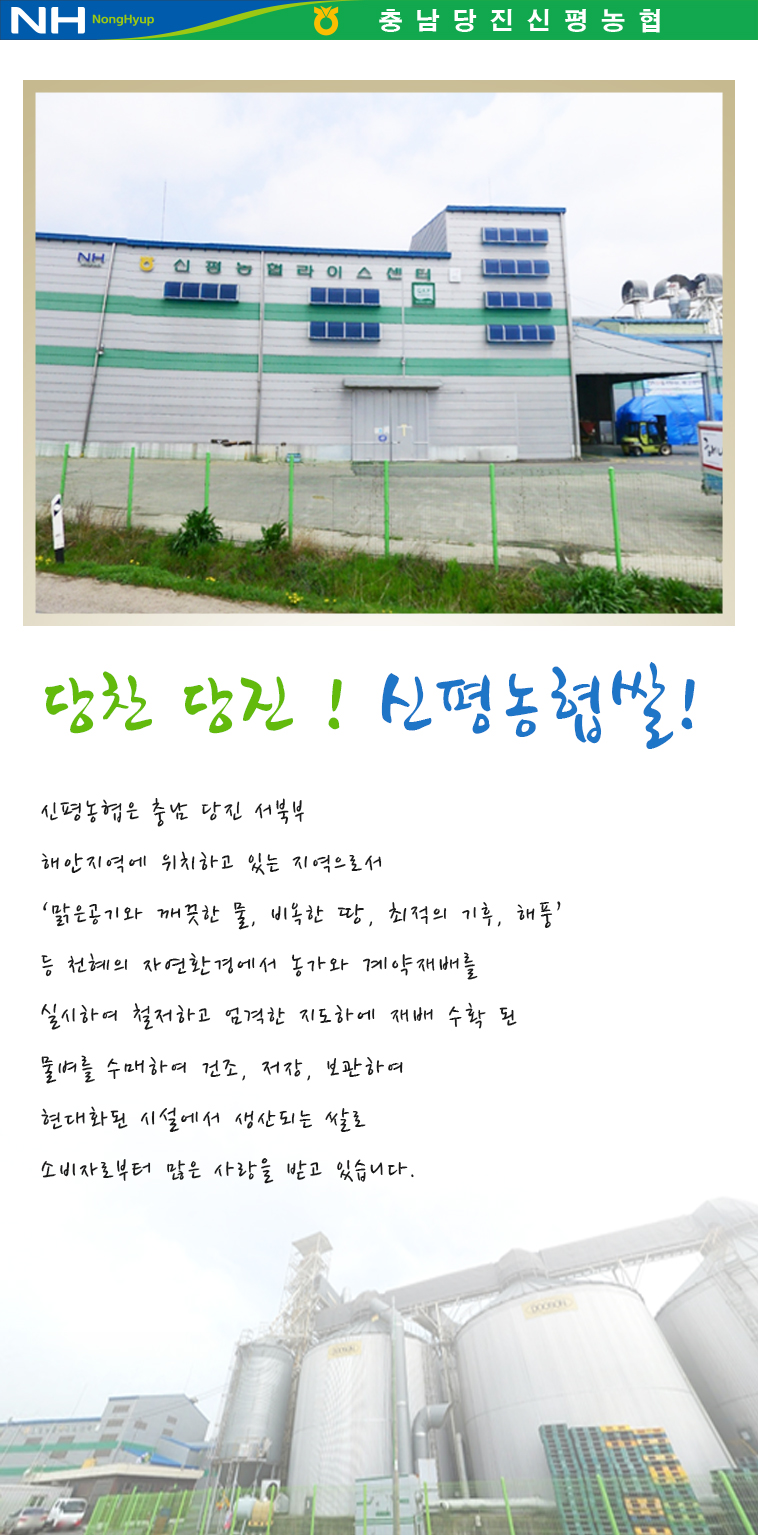 NH NongHyup 충남당진신평농협
NH 신평농협라이스센터
당찬 당진 ! 신평농협쌀!
신평농협은 충남 당진 서북부
해안지역에 위치하고 있는 지역으로서
‘맑은공기와 깨끗한 물, 비옥한 땅, 최적의 기후, 해풍’
등 천혜의 자연환경에서 농가와 계약재배를
실시하여 철저하고 엄격한 지도하에 재배 수확 된
물벼를 수매하여 건조, 저장, 보관하여
현대화된 시설에서 생산되는 쌀로
소비자로부터 많은 사랑을 받고 있습니다.